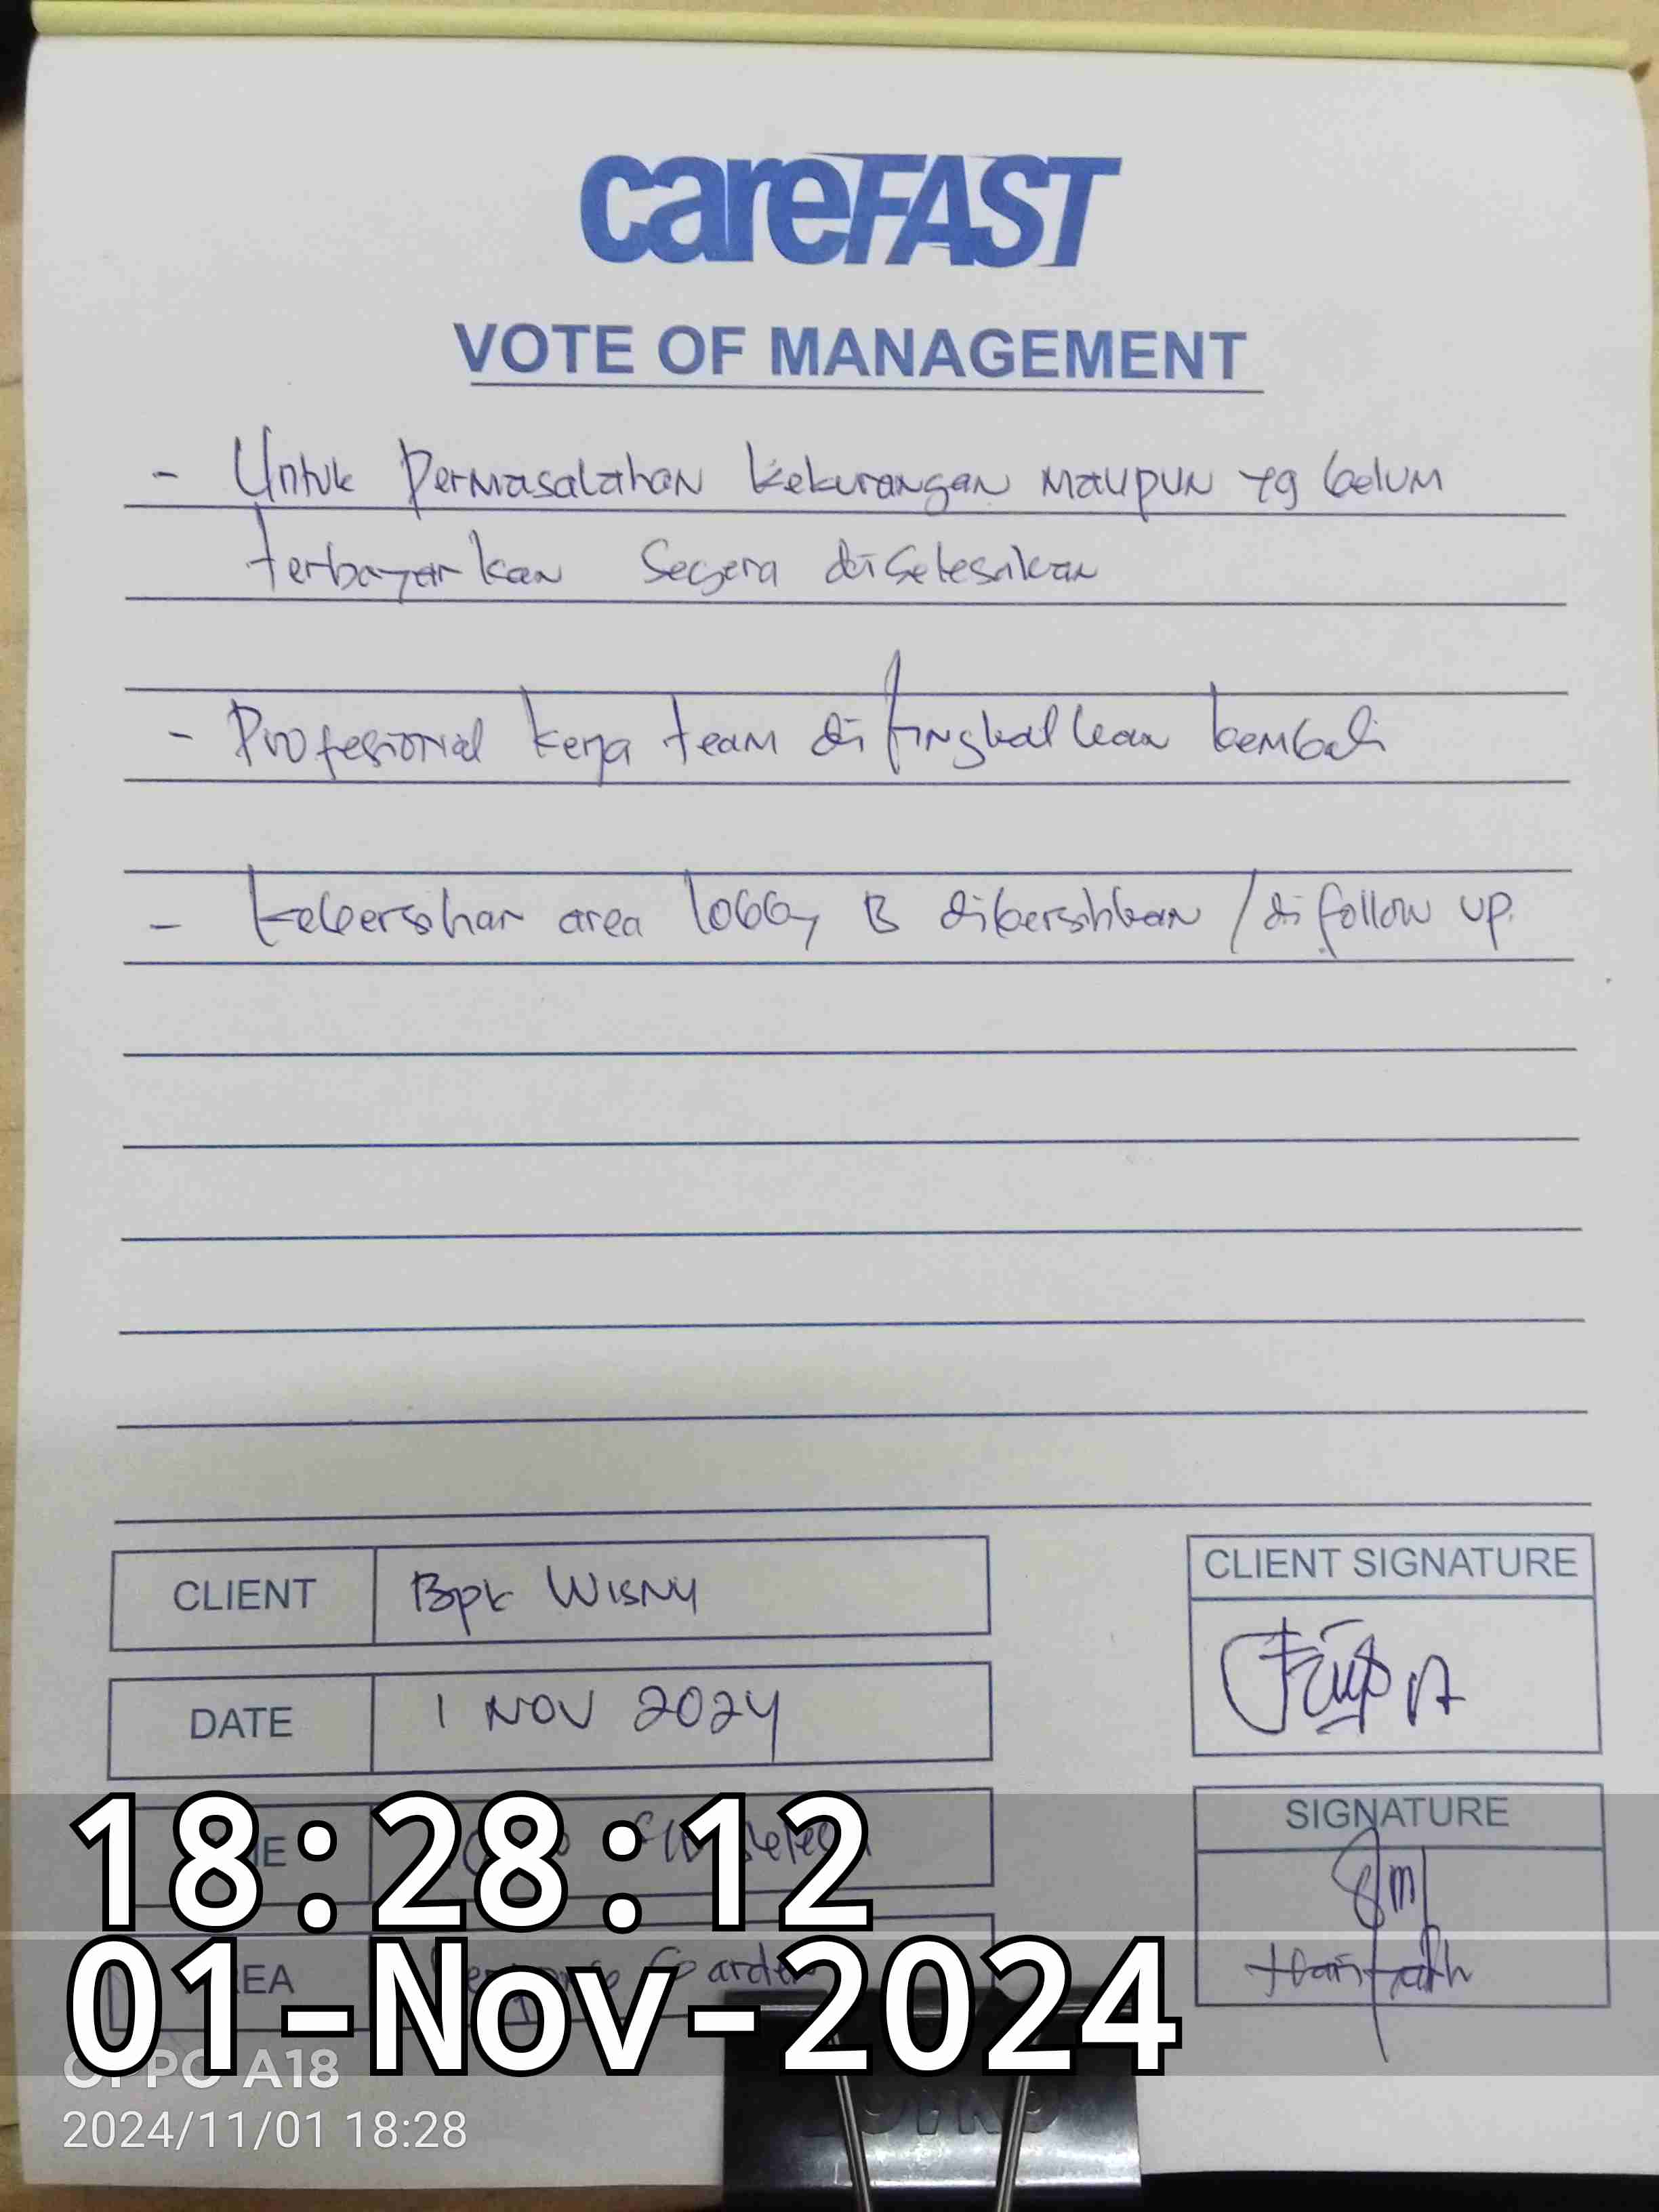 careFAST
VOTE OF MANAGEMENT
- Untuk Permasalahan kekurangan maupun yg belum
terbayarkan segera diselesaikan
- Profesional kerja team di tingkatkan kembali
- kebersihan area lobby B dibersihkan / di follow up.
CLIENT Bpk Wisnu
DATE 1 NOV 2024
CLIENT SIGNATURE
SIGNATURE
18:28:12
01-Nov-2024
OPPO A18
2024/11/01 18:28